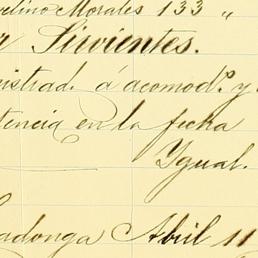 elino Morales 133 "
r Sirvientes.
nistrad. á acomod.º y
tencia en la fecha
Ygual.
adonga Abril 11